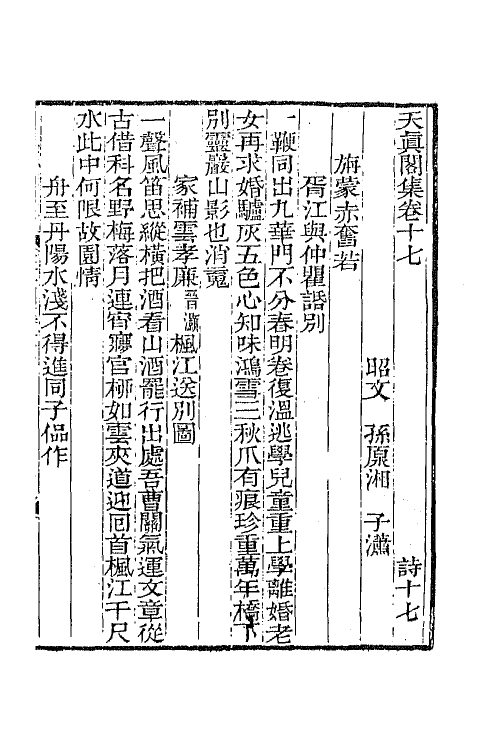 天眞閣集卷十七　詩十七
昭文　孫原湘　子瀟
旃蒙赤奮若
胥江與仲瞿話別
一鞭同出九華門不分春明卷復溫逃學兒童重上學離婚老
女再求婚驢灰五色心知味鴻雪三秋爪有痕珍重萬年橋下
別靈巖山影也消䰟
家補雲孝廉晉灝楓江送別圖
一聲風笛思縱橫把酒看山酒罷行出處吾曹關氣運文章從
古借科名野梅落月連宵廫官柳如雲夾道迎囘首楓江千尺
水此中何限故園情
舟至丹陽水淺不得進同子偘作